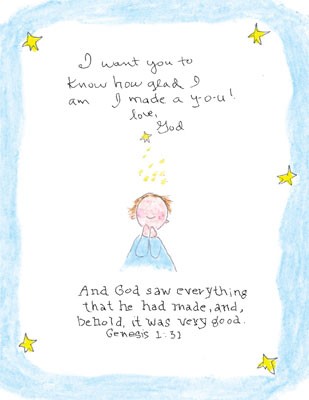 I want you to
know how glad I
am I made a y-o-u!
love,
God
And God saw everything
that he had made, and,
behold, it was very good.
Genesis 1:31